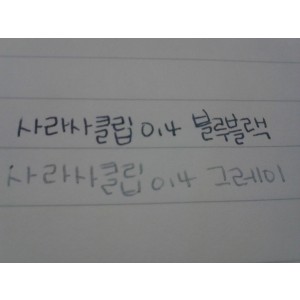 사라사클립 0.4 블루블랙
사라사클립 0.4 그레이